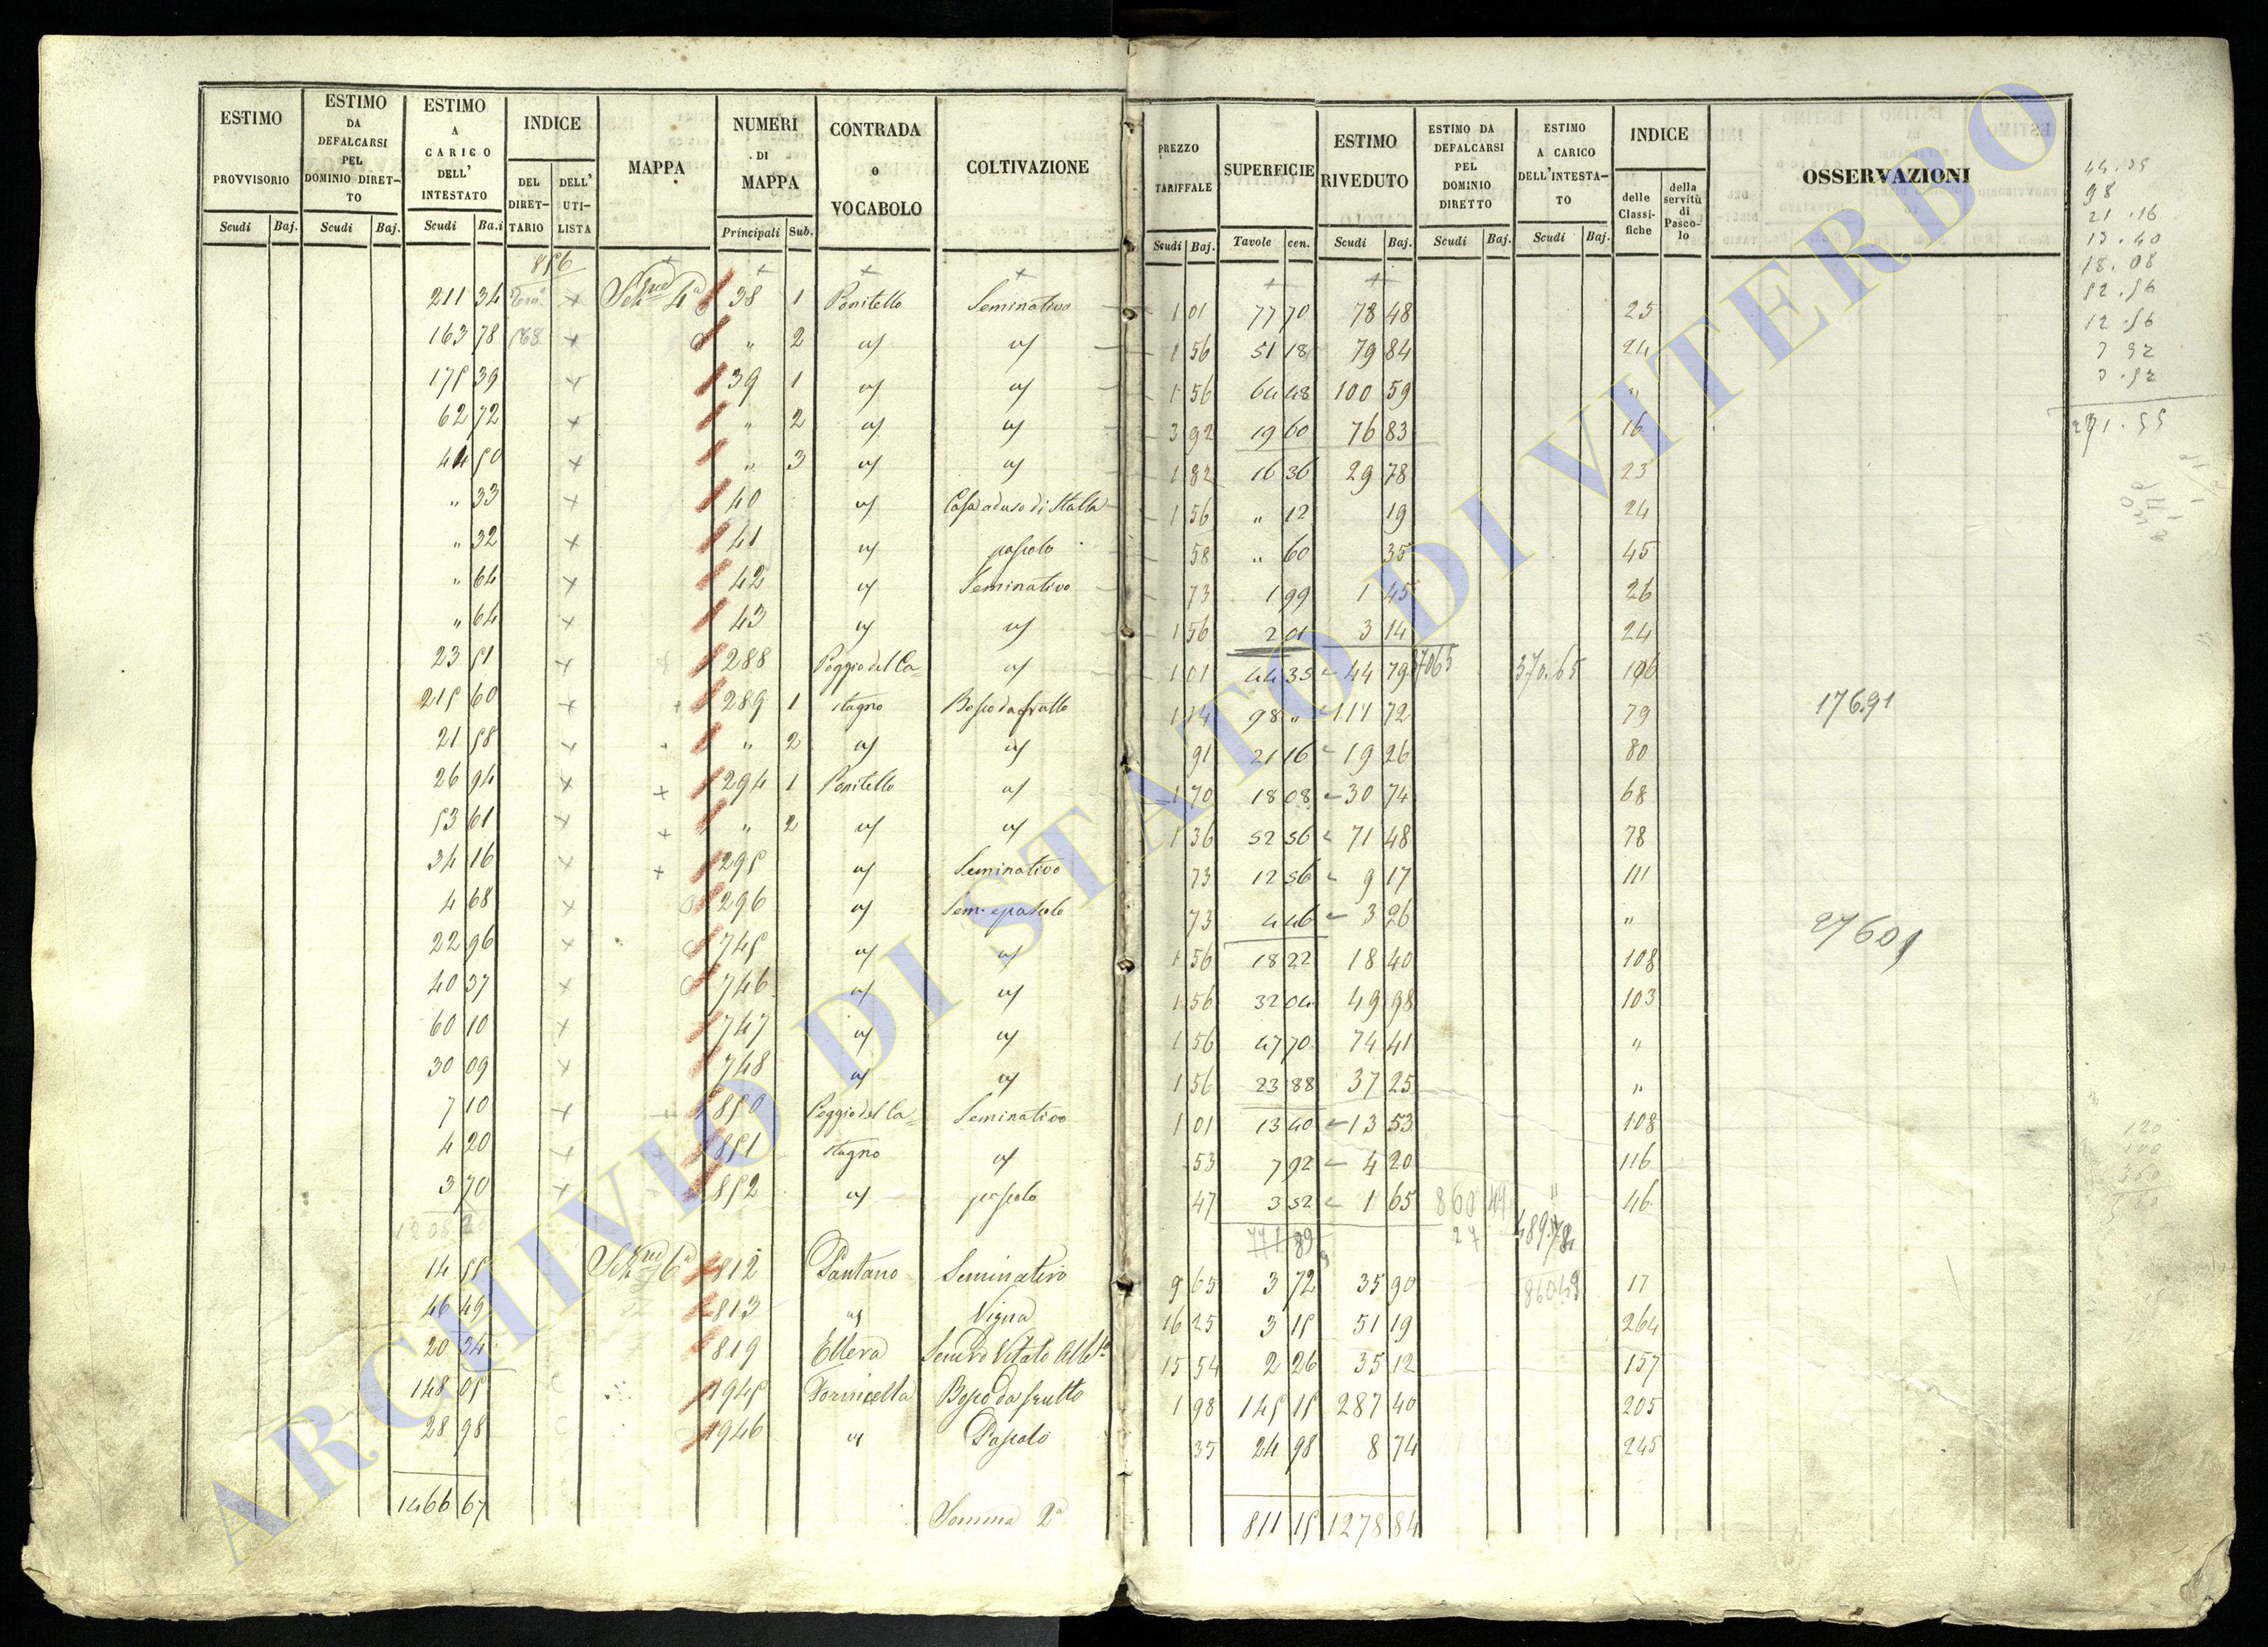 ESTIMO PROVVISORIO
ESTIMO DA DEFALCARSI PEL DOMINIO DIRET-TO
ESTIMO A CARICO DELL' INTESTATO
INDICE
DEL DIRET-TARIO
DELL' UTI-LISTA
MAPPA
NUMERI DI MAPPA
CONTRADA o VOCABOLO
COLTIVAZIONE
PREZZO TARIFFALE
SUPERFICIE
ESTIMO RIVEDUTO
ESTIMO DA DEFALCARSI PEL DOMINIO DIRETTO
ESTIMO A CARICO DELL'INTESTA-TO
INDICE
delle Classi-fiche
della servitù di Pasco-lo
OSSERVAZIONI
Scudi Baj. Scudi Baj. Scudi Ba.i Principali Sub. Scudi Baj. Tavole cen. Scudi Baj. Scudi Baj. Scudi Baj.
856
211 34 + 38 1 Ponitello Seminativo 1 01 77 70 78 48 25
163 78 + " 2 1 56 51 18 79 84 24
175 39 + 39 1 1 56 64 48 100 59 "
62 72 + " 2 3 92 19 60 76 83 16
44 50 + " 3 1 82 16 36 29 78 23
" 33 + 40 Casa ad uso di Stalla 1 56 " 12 19 24
" 32 + 41 pascolo 58 " 60 35 45
" 64 + 42 Seminativo 73 1 99 1 45 26
" 64 + 43 1 56 2 01 3 14 24
23 51 + 288 Poggio del Ca= 1 01 44 35 44 79 370.65 106
215 60 + 289 1 stagno Bosco da frutto 1 14 98 " 111 72 79
17691
21 58 + " 2 91 21 16 19 26 80
26 94 + 294 1 Ponitello 1 70 18 08 30 74 68
53 61 + " 2 1 36 52 56 71 48 78
34 16 + 295 Seminativo 73 12 56 9 17 111
4 68 + 296 Sem. e pascolo 73 4 46 3 26 "
27601
22 96 + 745 1 56 18 22 18 40 108
40 37 + 746 1 56 32 04 49 98 103
60 10 + 747 1 56 47 70 74 41 "
30 09 + 748 1 56 23 88 37 25 "
7 10 + 850 Poggio del Ca= Seminativo 1 01 13 40 13 53 108
4 20 + 851 stagno 53 7 92 4 20 116
3 70 + 852 pascolo 47 3 52 1 65 860 49 46
771 89
14 55 812 Pantano Seminativo 9 65 3 72 35 90 17
46 49 813 Vigna 16 25 3 15 51 19 264
20 34 819 Ellera 15 54 2 26 35 12 157
148 05 945 Fornicella Bosco da frutto 1 98 145 15 287 40 205
28 98 946 Pascolo 35 24 98 8 74 245
1466 67 Somma 2ª 811 15 1278 84
98
21.16
13.40
18.08
52.56
12.56
ARCHIVIO DI STATO DI VITERBO